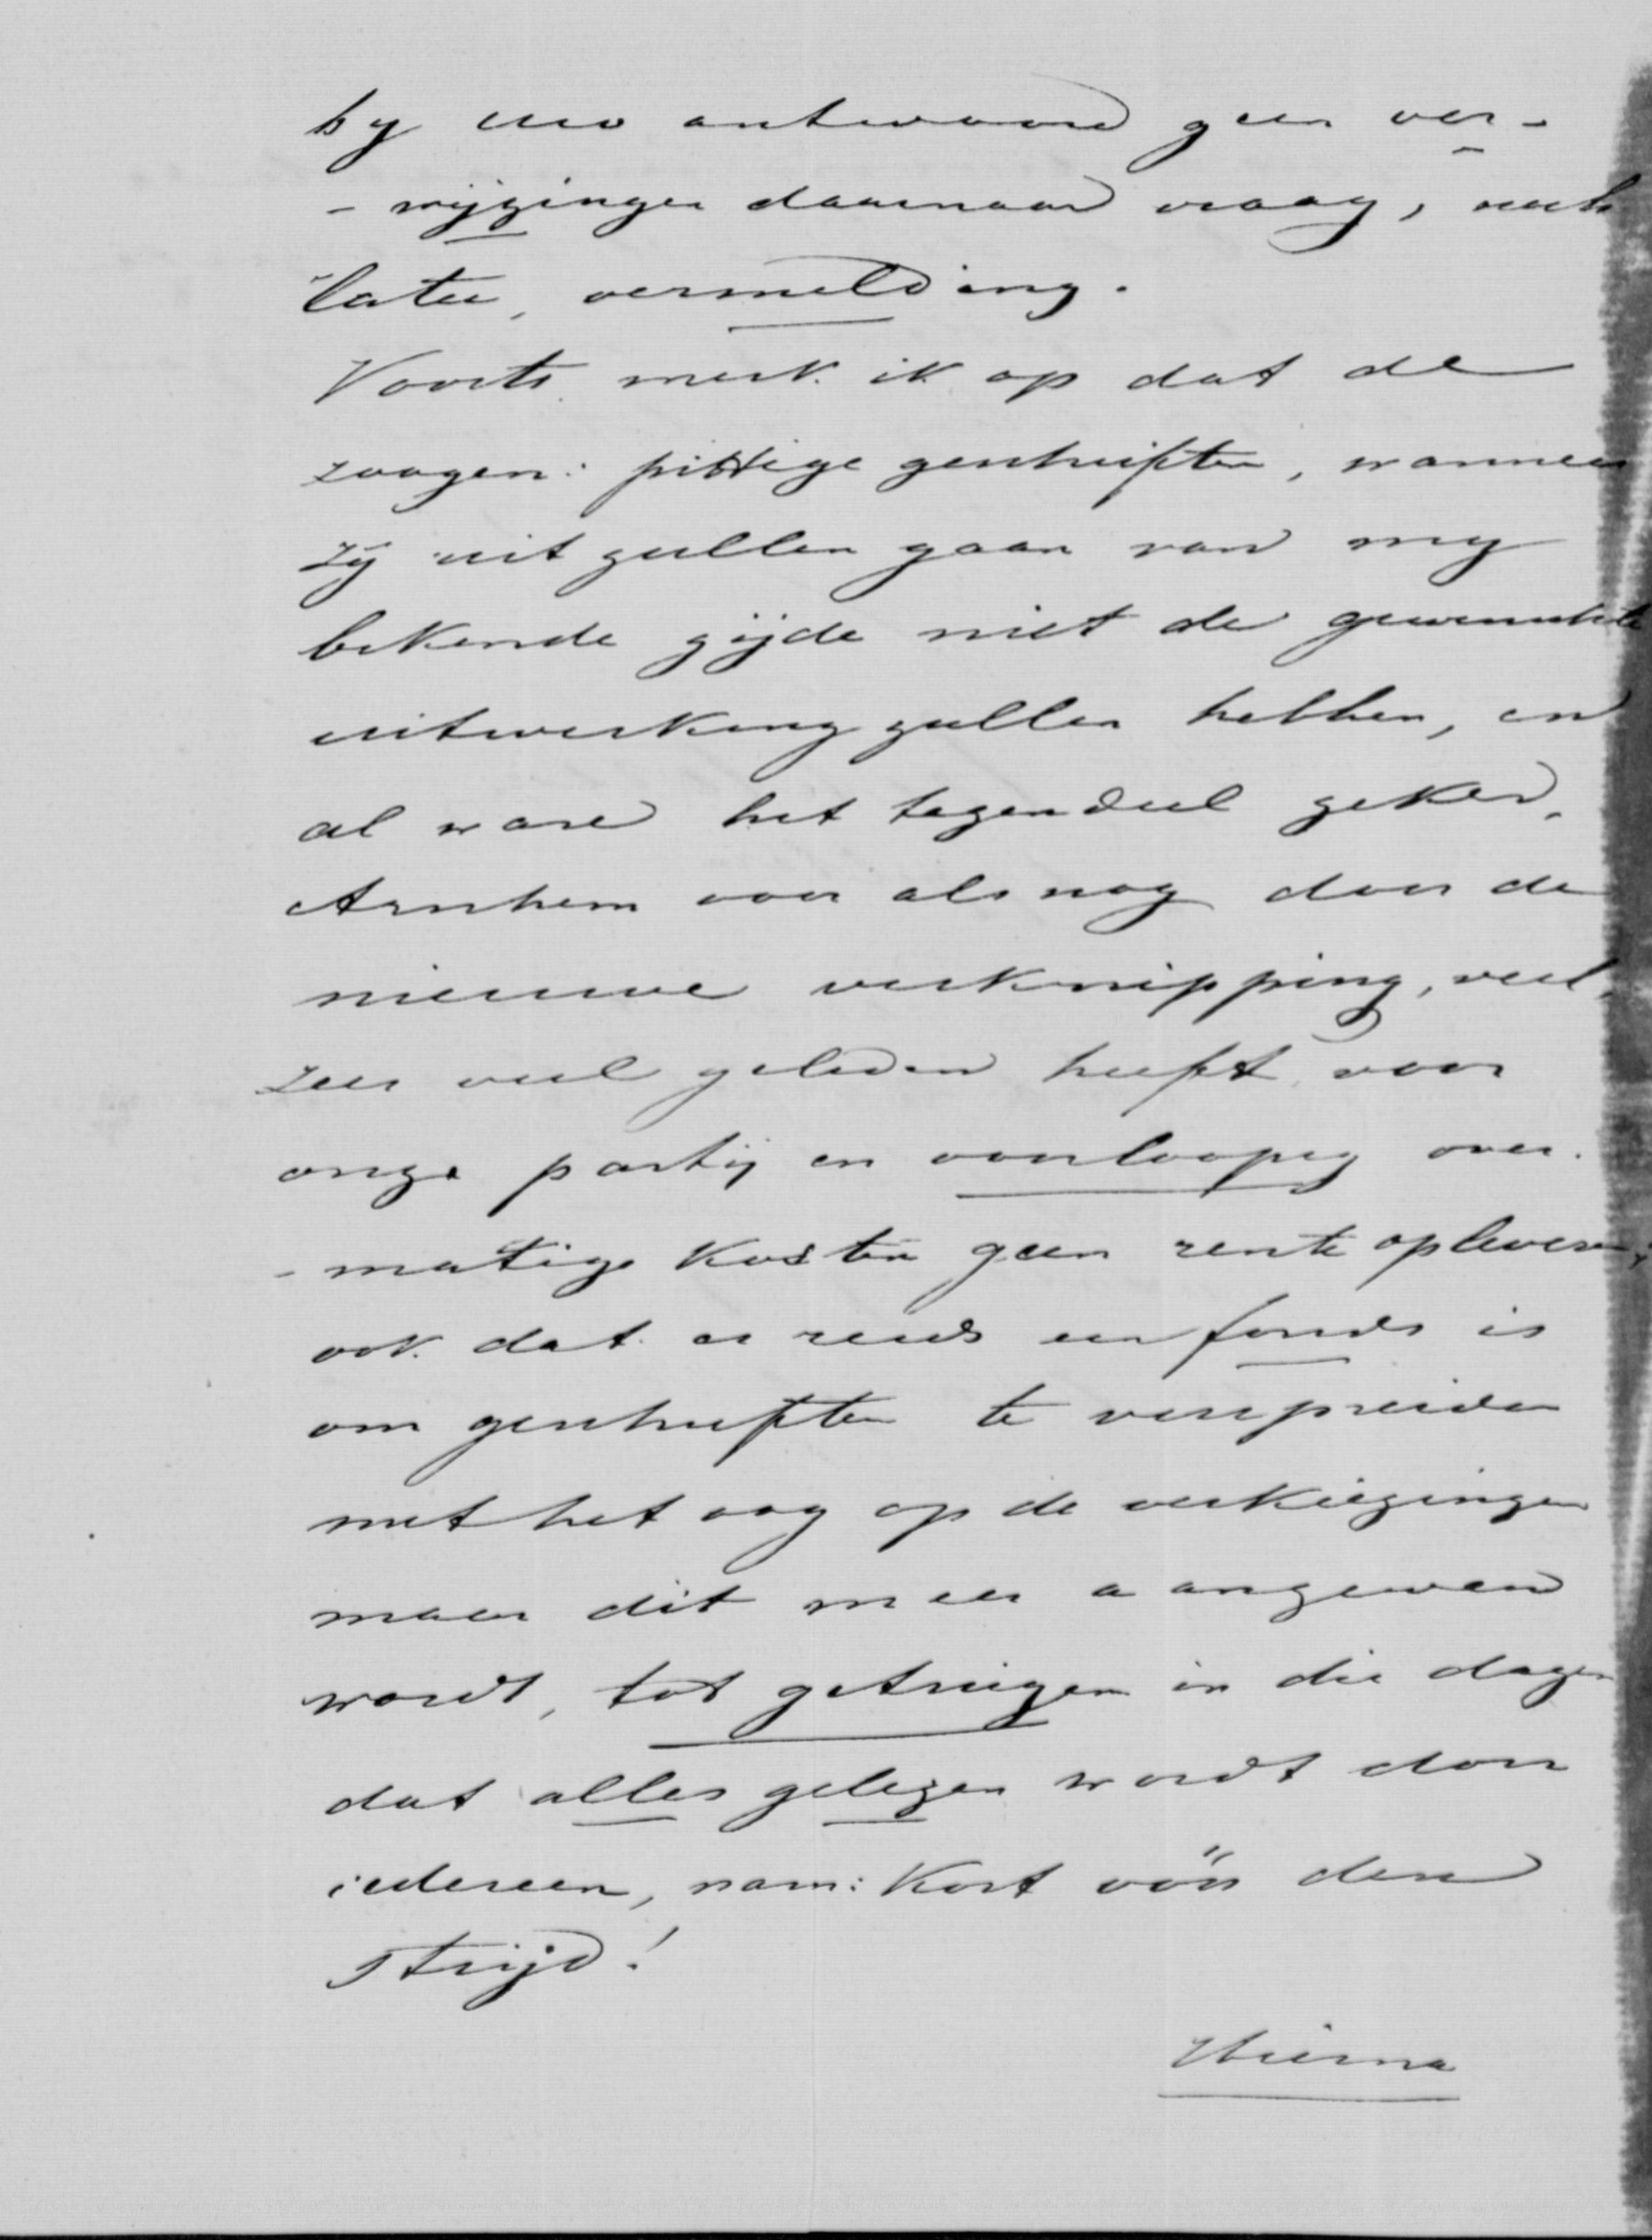 by uw antwoord geen ver-
-wijzingen daarnaar vraag, noch
later, vermelding.
Voorts merk ik op dat de
zoogen: pittige geschriften, wanneer
zij uit zullen gaan van my
bekende zijde niet de gewenschte
uitwerking zullen hebben, en
al ware het tegendeel zeker,
Arnhem voor als nog door de
nieuwe verknipping, veel,
zeer veel geleden heeft voor
onze partij en voorloopig over-
-matige kosten geen rente opleveren;
ook dat er reeds een fonds is
om geschriften te verspreiden
met het oog op de verkiezingen
maar dit meer aangewend
wordt, tot getuigen in die dagen
dat alles gelezen wordt door
iedereen, nam: kort vóór den
strijd!
Hierna